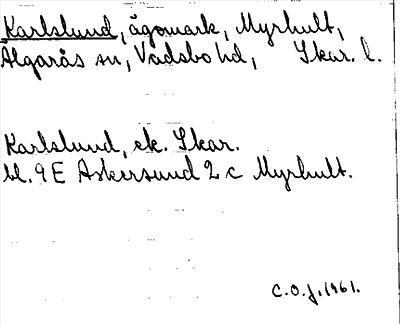 Karlslund, ägomark, Myrhult,
Älgarås sn, Vadsbo hd, Skar. l.
Karlslund, ek. Skar.
bl. 9 E Askersund 2 c Myrhult.
C.O.J. 1961.